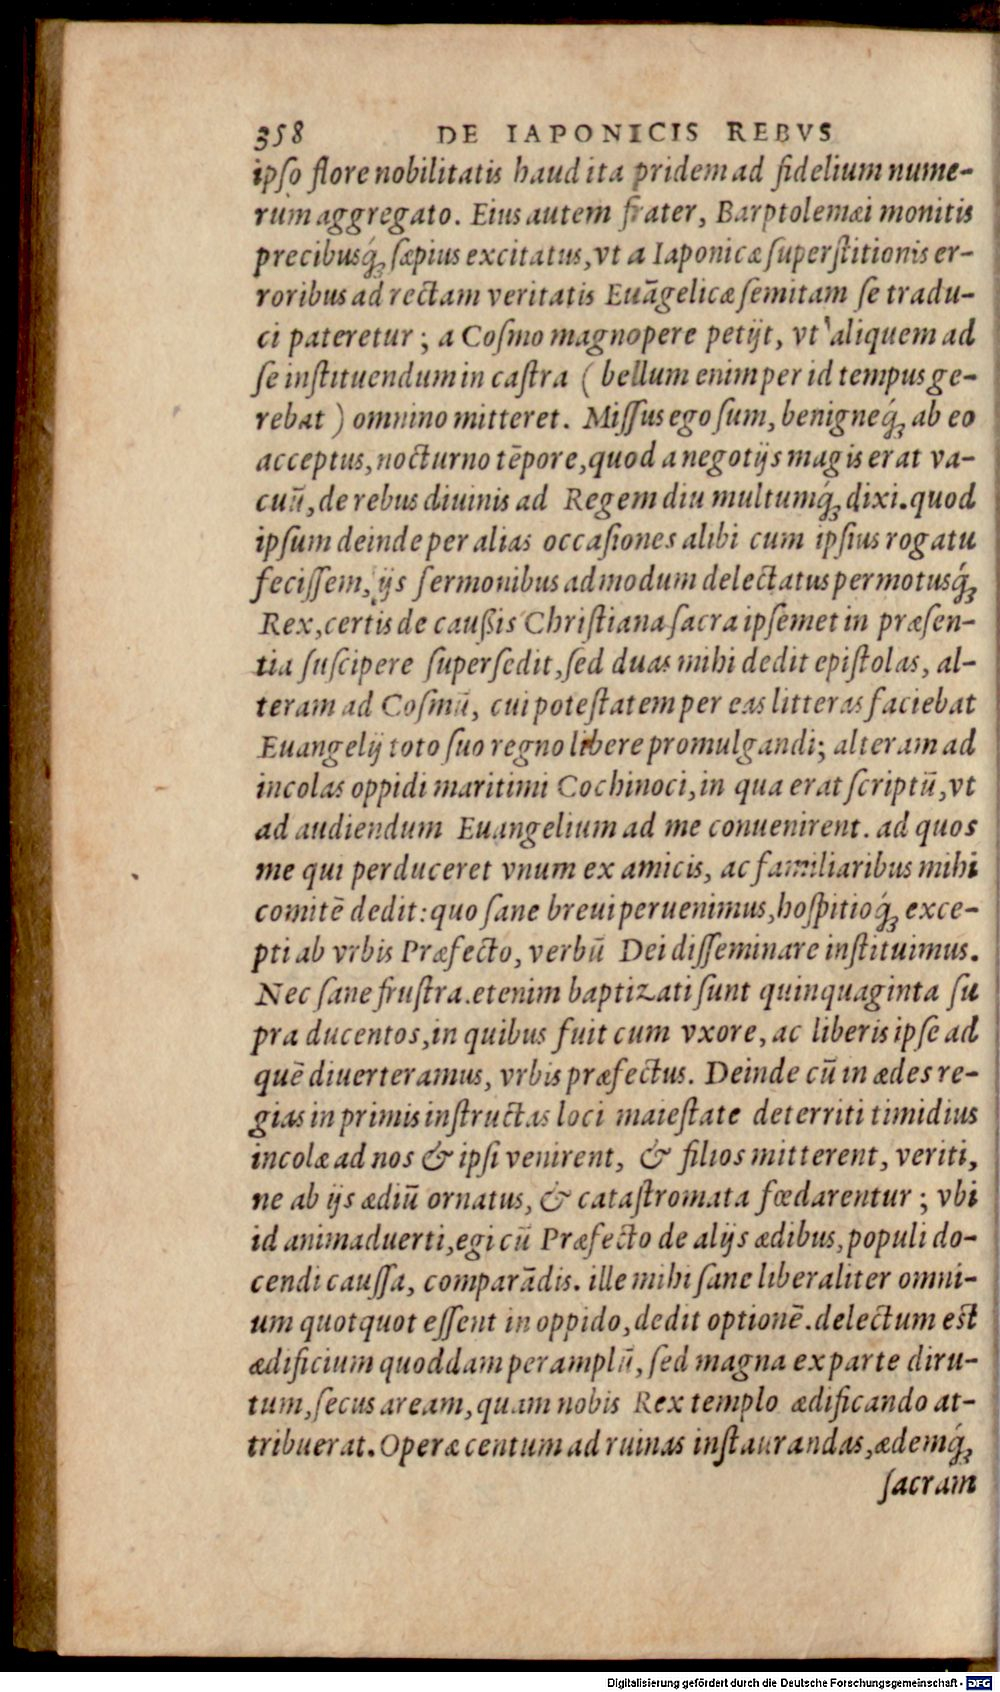 358 DE IAPONICIS REBVS
ipso flore nobilitatis haud ita pridem ad fidelium nume-
rum aggregato. Eius autem frater, Barptolemæi monitis
precibusq́ꝫ sæpius excitatus, vt a Iaponicæ superstitionis er-
roribus ad rectam veritatis Euãgelicæ semitam se tradu-
ci pateretur; a Cosmo magnopere petijt, vt aliquem ad
se instituendum in castra (bellum enim per id tempus ge-
rebat) omnino mitteret. Missus ego sum, benigneq́ꝫ ab eo
acceptus, nocturno tēpore, quod a negotijs magis erat va-
cuũ, de rebus diuinis ad Regem diu multumq́ꝫ dixi. quod
ipsum deinde per alias occasiones alibi cum ipsius rogatu
fecissem, ijs sermonibus admodum delectatus permotusq́ꝫ
Rex, certis de caußis Christiana sacra ipsemet in præsen-
tia suscipere supersedit, sed duas mihi dedit epistolas, al-
teram ad Cosmũ, cui potestatem per eas litteras faciebat
Euangelij toto suo regno libere promulgandi; alteram ad
incolas oppidi maritimi Cochinoci, in qua erat scriptũ, vt
ad audiendum Euangelium ad me conuenirent. ad quos
me qui perduceret vnum ex amicis, ac familiaribus mihi
comitē dedit: quo sane breui peruenimus, hospitioq́ꝫ exce-
pti ab vrbis Præfecto, verbũ Dei disseminare instituimus.
Nec sane frustra. etenim baptizati sunt quinquaginta su
pra ducentos, in quibus fuit cum vxore, ac liberis ipse ad
quē diuerteramus, vrbis præfectus. Deinde cũ in ædes re-
gias in primis instructas loci maiestate deterriti timidius
incolæ ad nos & ipsi venirent, & filios mitterent, veriti,
ne ab ijs ædiũ ornatus, & catastromata fœdarentur; vbi
id animaduerti, egi cũ Præfecto de alijs ædibus, populi do-
cendi caussa, comparãdis. ille mihi sane liberaliter omni-
um quotquot essent in oppido, dedit optionē. delectum est
ædificium quoddam peramplũ, sed magna ex parte diru-
tum, secus aream, quam nobis Rex templo ædificando at-
tribuerat. Operæ centum ad ruinas instaurandas, ædemq́ꝫ
sacram
Digitalisierung gefördert durch die Deutsche Forschungsgemeinschaft - DFG